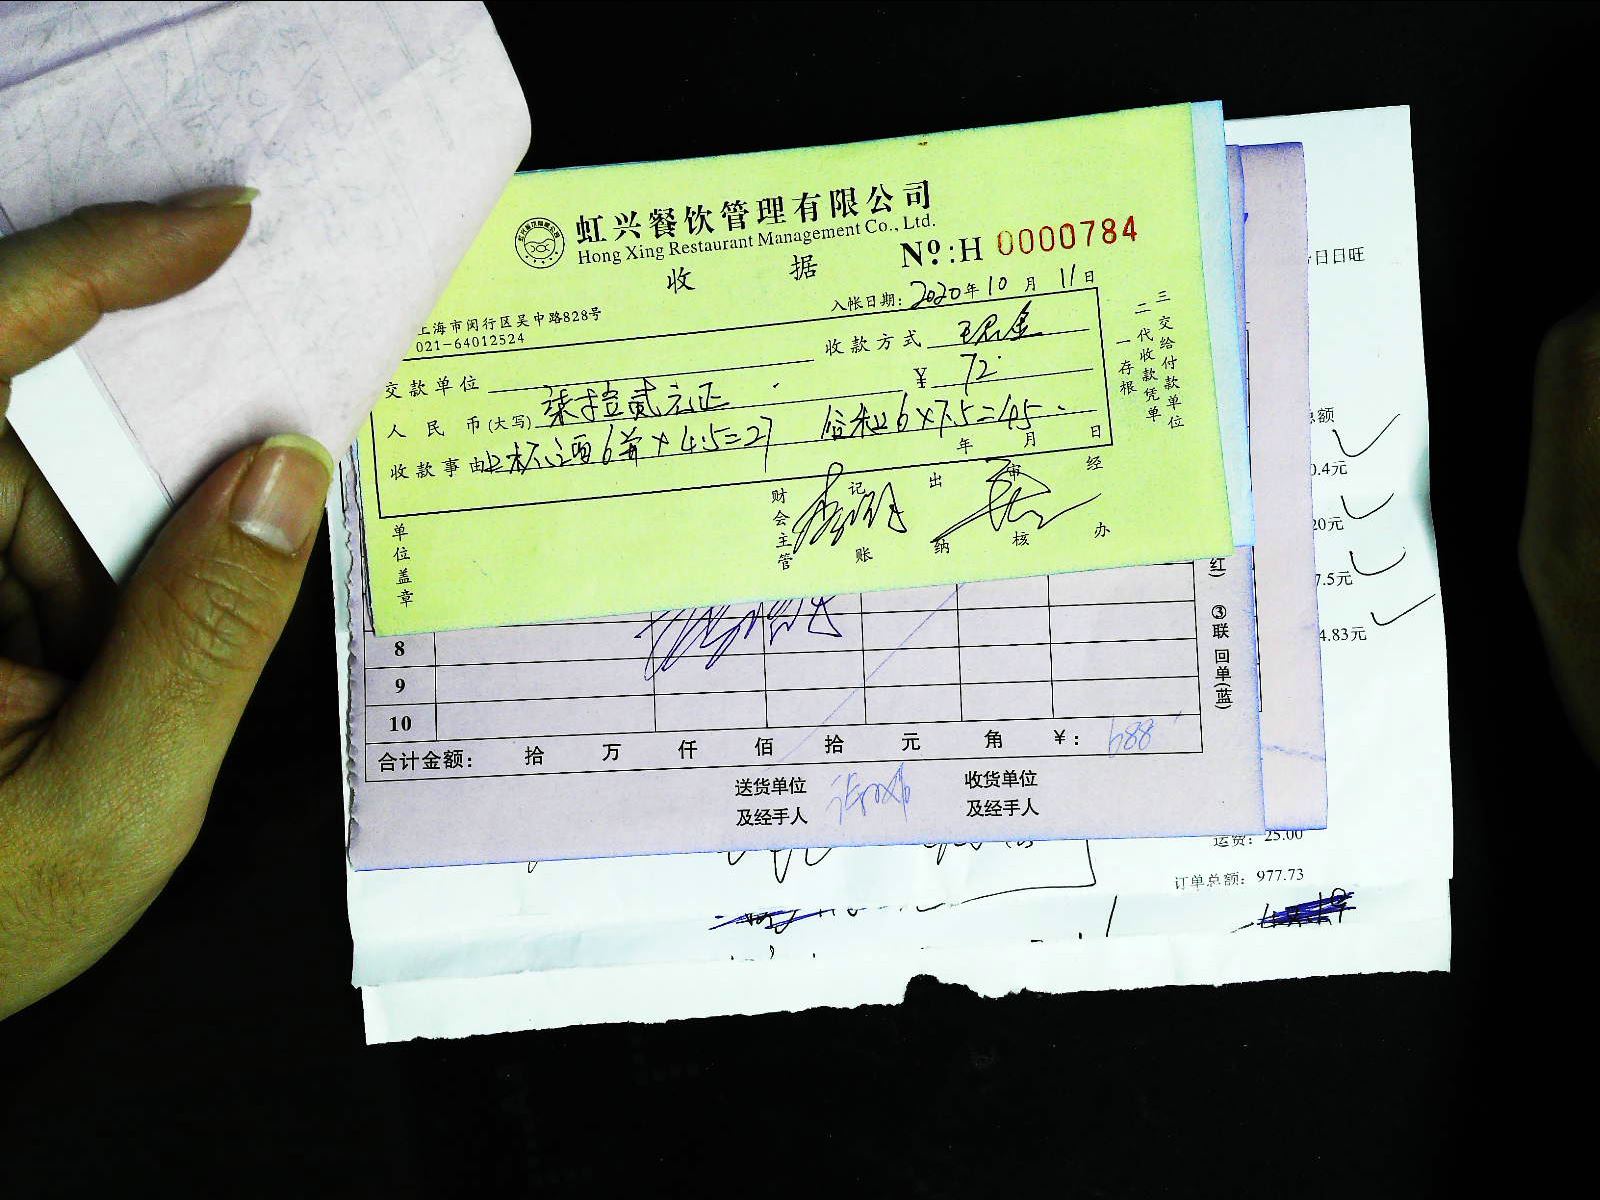 虹兴餐饮管理有限公司
Hong Xing Restaurant Management Co., Ltd.
收 据
№:H 0000784
上海市闵行区吴中路828号
021-64012524
入帐日期: 2020年10月11日
交款单位
收款方式 现金
人民币(大写) 柒拾贰元正
¥ 72
收款事由 6 × 4.5=27 6×7.5=45
年 月 日
单位盖章
财会主管
记账
出纳
审核
经办
一存根
二代收款凭单
三交给付款单位
红)
③联 回单(蓝)
8
9
10
合计金额: 拾 万 仟 佰 拾 元 角 ¥: 688
送货单位
及经手人
收货单位
及经手人
日日旺
总额
0.4元
20元
7.5元
4.83元
运费: 25.00
订单总额: 977.73